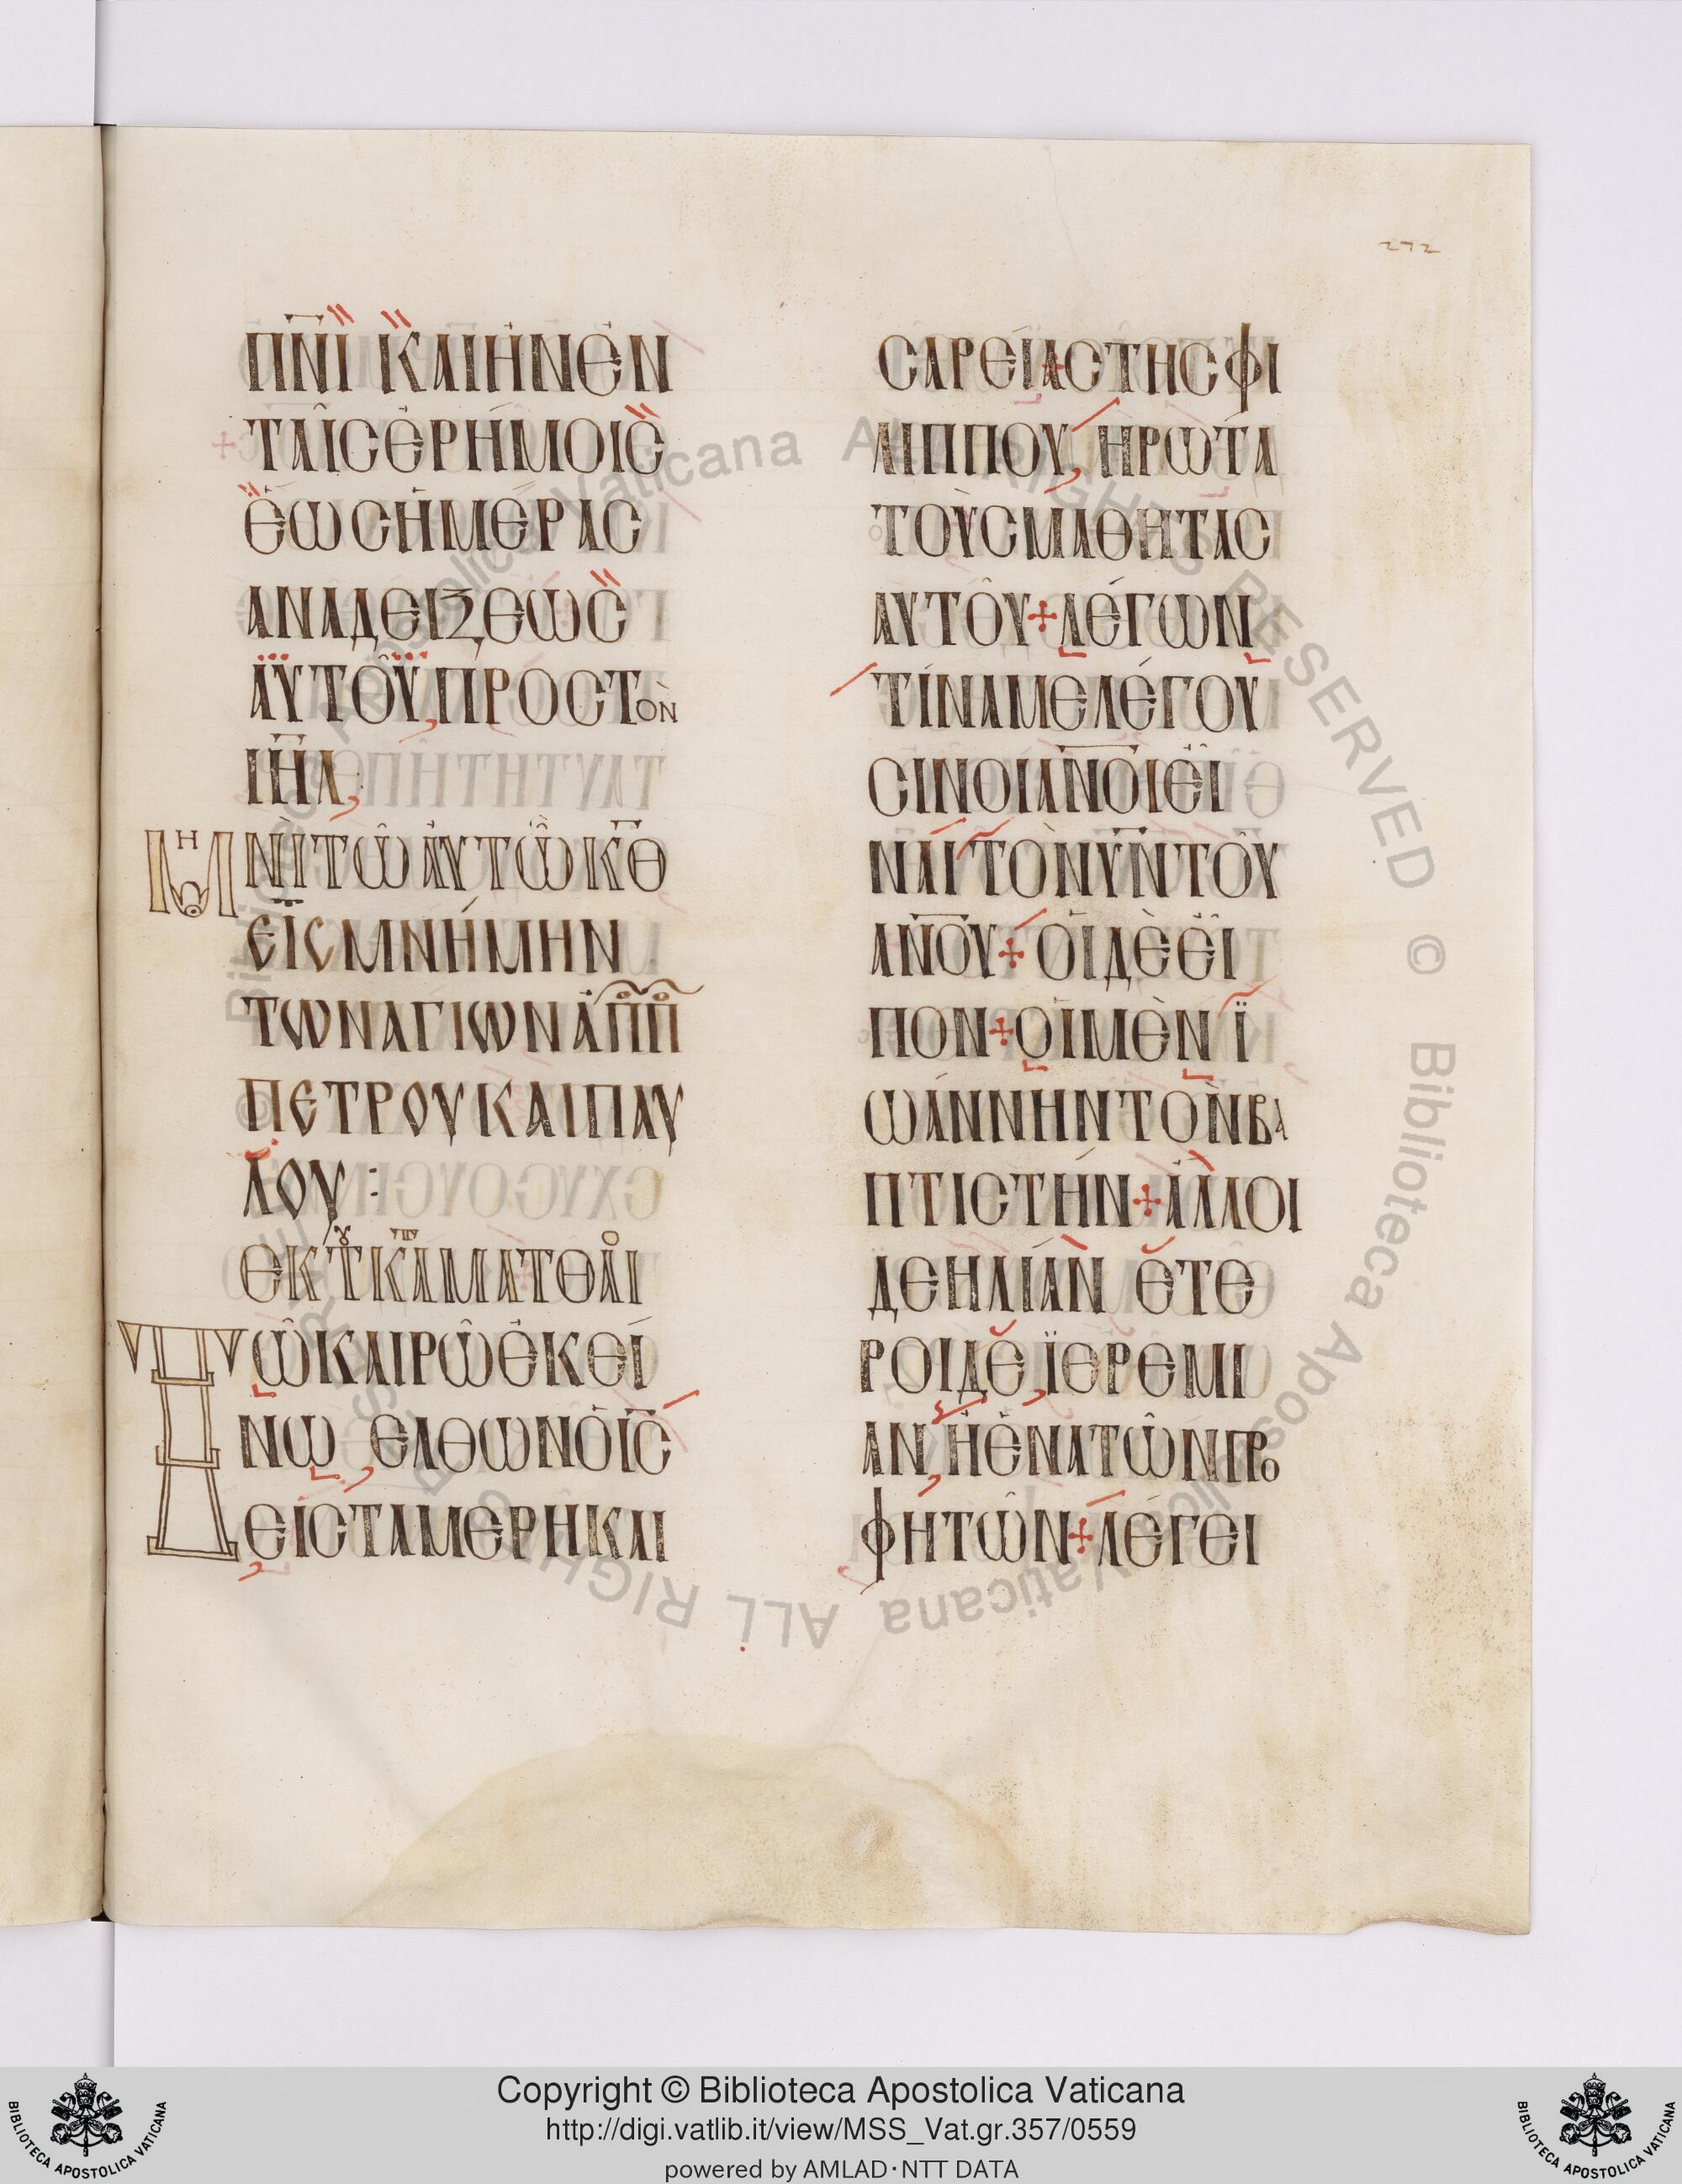 272
ΠΝΙ ΚΑΙΗΝΕΝ
ΤΑΙCΕΡΗΜΟΙC
ΕΩCΗΜΕΡΑC
ΑΝΑΔΕΙΞΕΩC
ΑΥΤΟΥ,ΠΡΟCΤΟΝ
ΙΗΛ,
ΜΗΝΙΤΩΑΥΤΩΚΘ
ΕΙCΜΝΗΜΗΝ
ΤΩΝΑΓΙΩΝΑΠΠ
ΠΕΤΡΟΥΚΑΙΠΑΥ
ΛΟΥ:
ΕΚΤΚΑΜΑΤΘΑΙ
ΤΩΚΑΙΡΩΕΚΕΙ
ΝΩ, ΕΛΘΩΝΟΙC
ΕΙCΤΑΜΕΡΗΚΑΙ
CΑΡΕΙΑCΤΗCΦΙ
ΛΙΠΠΟΥ, ΗΡΩΤΑ
ΤΟΥCΜΑΘΗΤΑC
ΑΥΤΟΥ+ΛΕΓΩΝ
ΤΙΝΑΜΕΛΕΓΟΥ
CΙΝΟΙΑΝΟΙΕΙ
ΝΑΙΤΟΝΥΝΤΟΥ
ΑΝΟΥ+ΟΙΔΕΕΙ
ΠΟΝ+ΟΙΜΕΝ Ϊ
ΩΑΝΝΗΝΤΟΝΒΑ
ΠΤΙCΤΗΝ+ΑΛΛΟΙ
ΔΕΗΛΙΑΝ ΕΤΕ
ΡΟΙΔΕ,ΪΕΡΕΜΙ
ΑΝ,ΗΕΝΑΤΩΝΠΡΟ
ΦΗΤΩΝ+ΛΕΓΕΙ
Biblioteca Apostolica Vaticana ALL RIGHTS RESERVED © Biblioteca Apostolica Vaticana ALL RIGHTS RESERVED ©
BIBLIOTECA APOSTOLICA VATICANA
Copyright © Biblioteca Apostolica Vaticana
http://digi.vatlib.it/view/MSS_Vat.gr.357/0559
powered by AMLAD·NTT DATA
BIBLIOTECA APOSTOLICA VATICANA